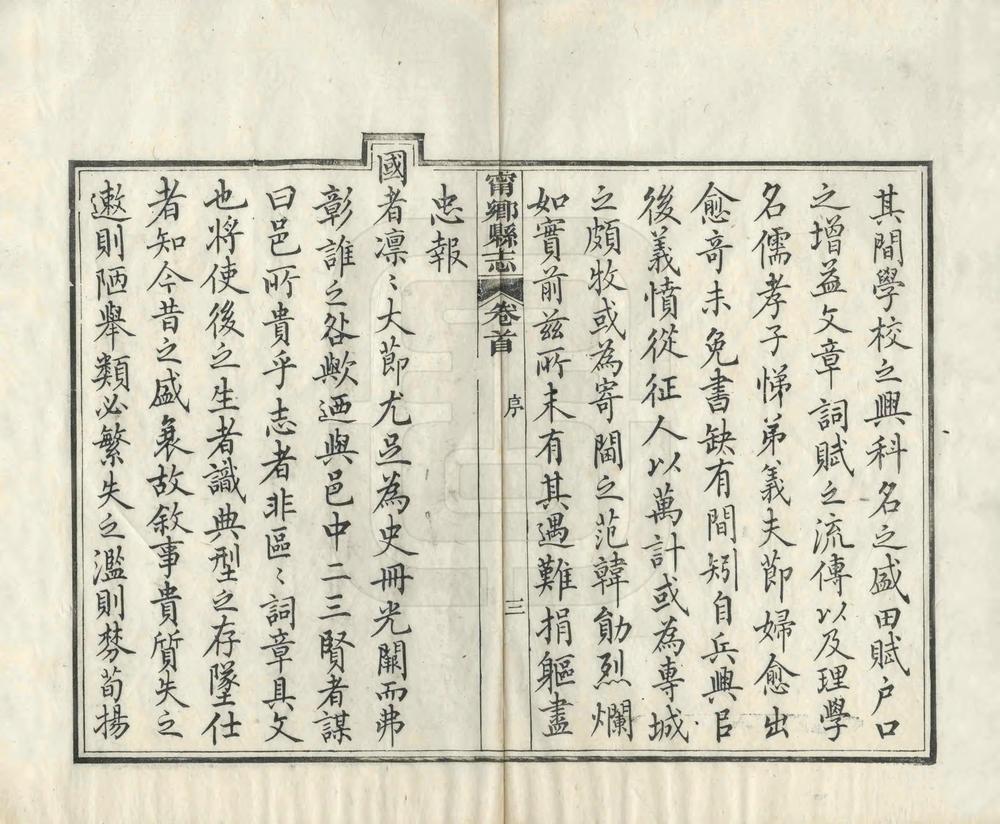 其間學校之興科名之盛田賦户口
之增益文章詞賦之流傳以及理學
名儒孝子悌弟義夫節婦愈出
愈奇未免書缺有間矧自兵興后
後義憤從征人以萬計或為專城
之頗牧或為寄閫之范韓勛烈爛
如實前兹所未有其遇難捐軀盡
甯鄉縣志
卷首
序
三
忠報
國者凛〻大節尤足為史冊光闕而弗
彰誰之咎歟迺與邑中二三賢者謀
曰邑所貴乎志者非區〻詞章具文
也將使後之生者識典型之存墜仕
者知今昔之盛衰故敘事貴質失之
遬則陋舉類必繁失之濫則棼苟揚